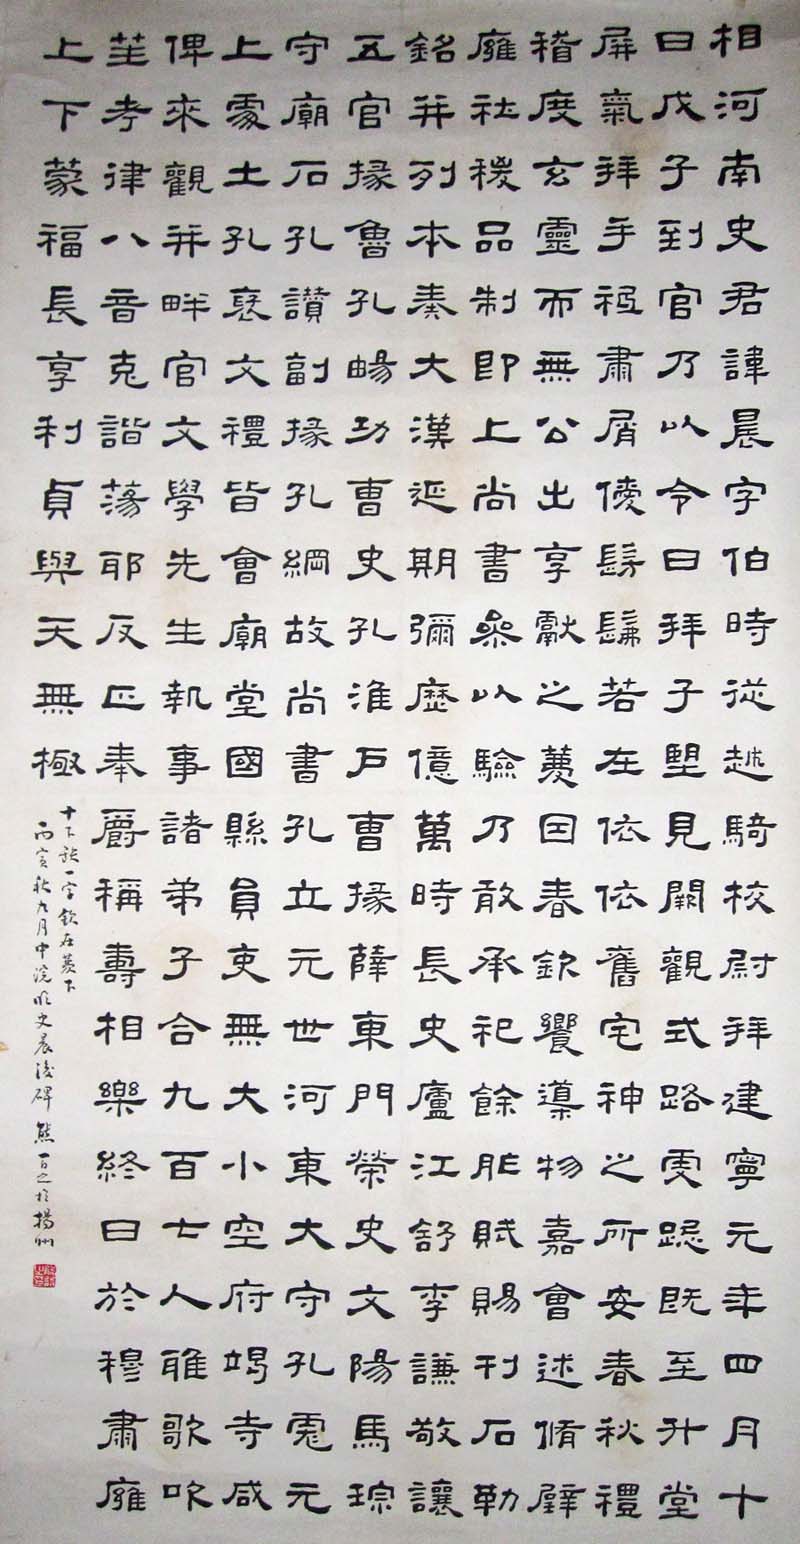 相河南史君諱晨字伯時從越騎校尉拜建寧元年四月十
日戊子到官乃以令日拜子朢見闕觀式路虔跽既至升堂
屏氣拜手祗肅屑僾髣髴若在依依舊宅神之所安春秋禮
稽度玄靈而無公出享獻之薦因春欽饗導物嘉會述脩璧
廱社稷品制即上尚書參以驗乃敢承祀餘胙賦賜刊石勒
銘并列本奏大漢延期彌歷億萬時長史廬江舒李謙敬讓
五官掾魯孔暢功曹史孔淮戶曹掾薛東門榮史文陽馬琮
守廟石孔讚副掾孔綱故尚書孔立元世河東大守孔彪元
上處土孔褒文禮皆會廟堂國縣員吏無大小空府竭寺咸
俾來觀并畔官文學先生執事諸弟子合九百七人雅歌吹
笙考律八音克諧蕩邪反正奉爵稱壽相樂終日於穆肅廱
上下蒙福長享利貞與天無極
十下敓一字欽在薦下
丙寅秋九月中浣临史晨後碑熊百之於揚州